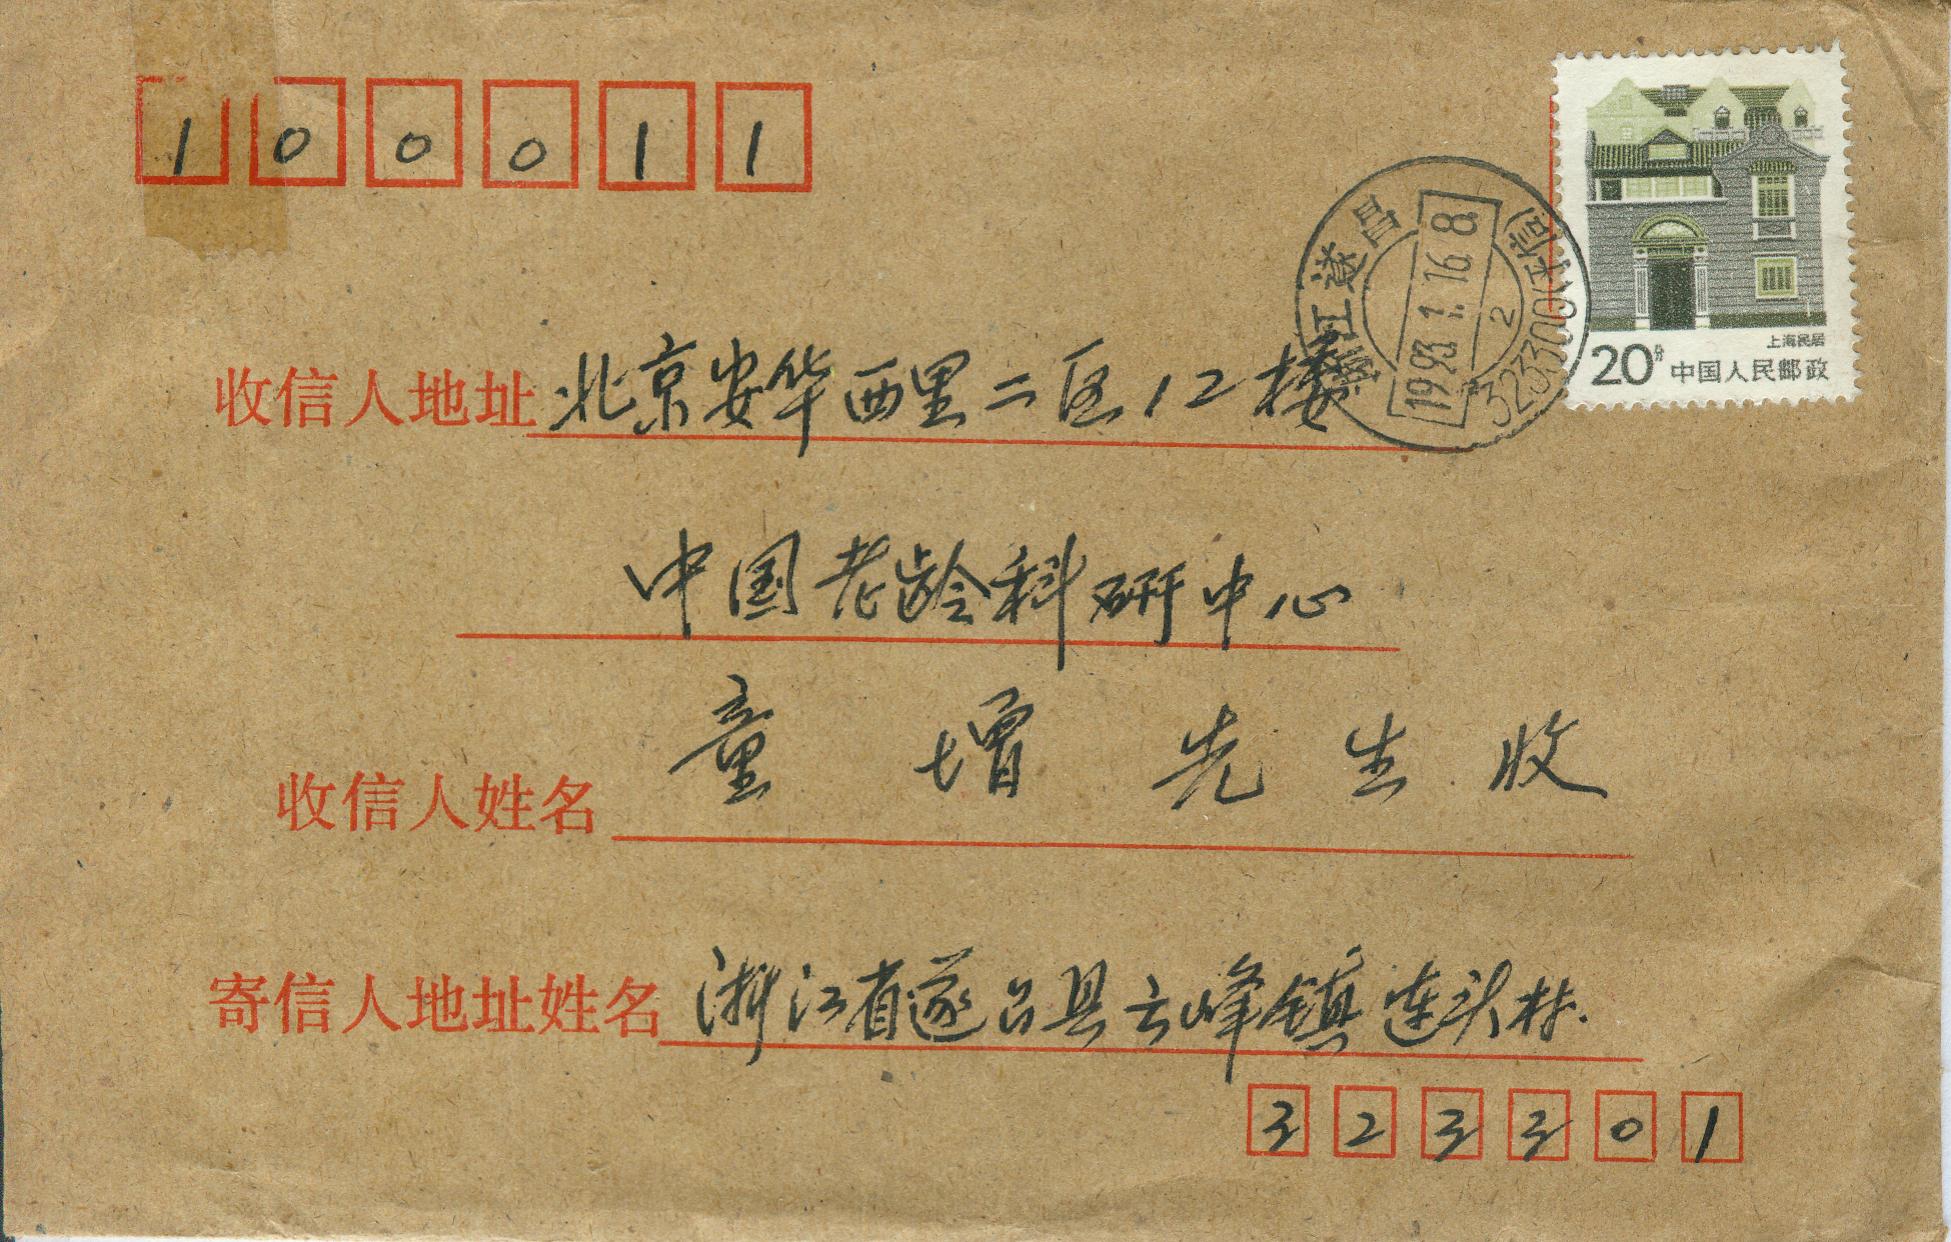 100011
上海民居
20分 中国人民邮政
浙江遂昌
1993.1.16.8
2
323300
收信人地址 北京安华西里二区12楼
中国老龄科研中心
收信人姓名 童增先生收
寄信人地址姓名 浙江省遂昌县云峰镇连头村.
323301